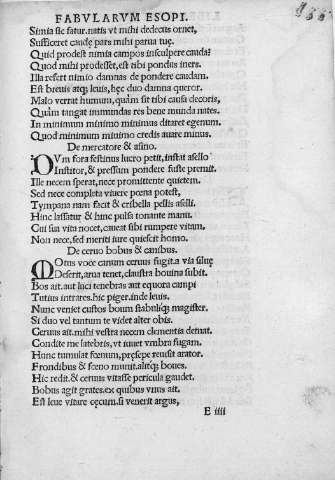 FABVLARVM ESOPI.
Simia sic fatur.natis vt mihi dedecus ornet,
Sufficeret caudę pars mihi parua tuę.
Quid prodest nimia campos insculpere cauda?
Quod mihi prodesset, est tibi pondus iners.
Illa refert nimio damnas de pondere caudam.
Est breuis atq; leuis, hęc duo damna queror.
Malo verrat humum, quàm sit tibi causa decoris,
Quàm tangat immundas res bene munda nates.
In minimum minimo minimus ditaret egenum.
Quod minimum minimo credis auare minus.
De mercatore & asino.
DVm fora festinus lucro petit, instat asello
Institor, & pressum pondere fuste premit.
Ille necem sperat, nece promittente quietem.
Sed nece completa viuere poena potest,
Tympana nam facit & cribella pellis aselli.
Hinc lassatur & hinc pulsa tonante manu.
Cui sua vita nocet, caueat sibi rumpere vitam.
Non nece, sed meriti iure quiescit homo.
De ceruo bobus & canibus.
MOtus voce canum ceruus fugit.a via siluę
Deserit, arua tenet, claustra bouina subit.
Bos ait.aut luci tenebras aut equora campi
Tutius intrares.hic piger.inde leuis.
Nunc veniet custos boum stabuliq; magister.
Si duo vel tantum te videt alter obis.
Ceruus ait.mihi vestra necem clementia demat.
Condite me latebris, vt iuuet vmbra fugam.
Hunc tumulat foenum, pręsepe reuisit arator.
Frondibus & foeno munit.alitq; boues.
Hic redit.& ceruus vitasse pericula gaudet.
Bobus agit grates.ex quibus vnus ait.
Est leue vitare cęcum.si venerit argus,
E iiii